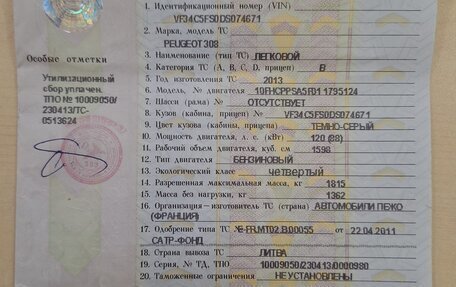 1. Идентификационный номер (VIN)
VF34C5FS0DS074671
2. Марка, модель ТС
PEUGEOT 308
Особые отметки
3. Наименование (тип ТС) ЛЕГКОВОЙ
4. Категория ТС (А, В, С, D, прицеп) B
Утилизационный
сбор уплачен.
ТПО № 10009050/
230413/ТС-
0513624
5. Год изготовления ТС 2013
6. Модель, № двигателя 10FHCPPSA5F01 1795124
7. Шасси (рама) № ОТСУТСТВУЕТ
8. Кузов (кабина, прицеп) № VF34C5FS0DS074671
9. Цвет кузова (кабины, прицепа) ТЕМНО-СЕРЫЙ
10. Мощность двигателя, л. с. (кВт) 120 (88)
11. Рабочий объем двигателя, куб. см 1598
12. Тип двигателя БЕНЗИНОВЫЙ
13. Экологический класс четвертый
14. Разрешенная максимальная масса, кг 1815
15. Масса без нагрузки, кг 1362
16. Организация—изготовитель ТС (страна) АВТОМОБИЛИ ПЕЖО
(ФРАНЦИЯ)
17. Одобрение типа ТС № Е-FR.МТ02.В.00055 от 22.04.2011
САТР-ФОНД
18. Страна вывоза ТС ЛИТВА
19. Серия, № ТД, ТПО 10009050/230413/0000980
20. Таможенные ограничения НЕ УСТАНОВЛЕНЫ